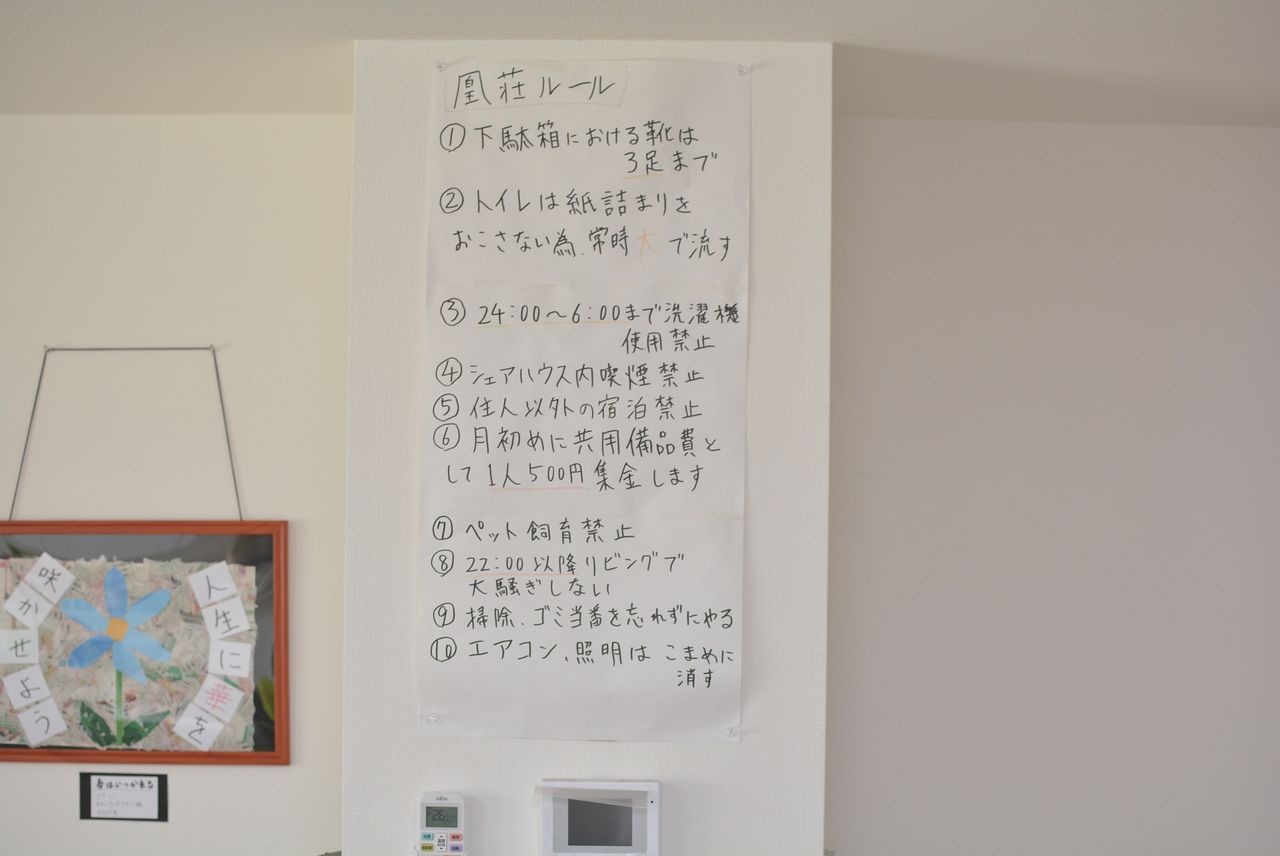 凰荘ルール
① 下駄箱における靴は
3足まで
② トイレは紙詰まりを
おこさない為、常時大で流す
③ 24:00〜6:00まで洗濯機
使用禁止
④ シェアハウス内喫煙禁止
⑤ 住人以外の宿泊禁止
⑥ 月初めに共用備品費と
して1人500円集金します
⑦ ペット飼育禁止
⑧ 22:00以降リビングで
大騒ぎしない
⑨ 掃除、ゴミ当番を忘れずにやる
⑩ エアコン、照明は こまめに
消す
人生に華を
咲かせよう
春はいつか来る
FUJITSU
26